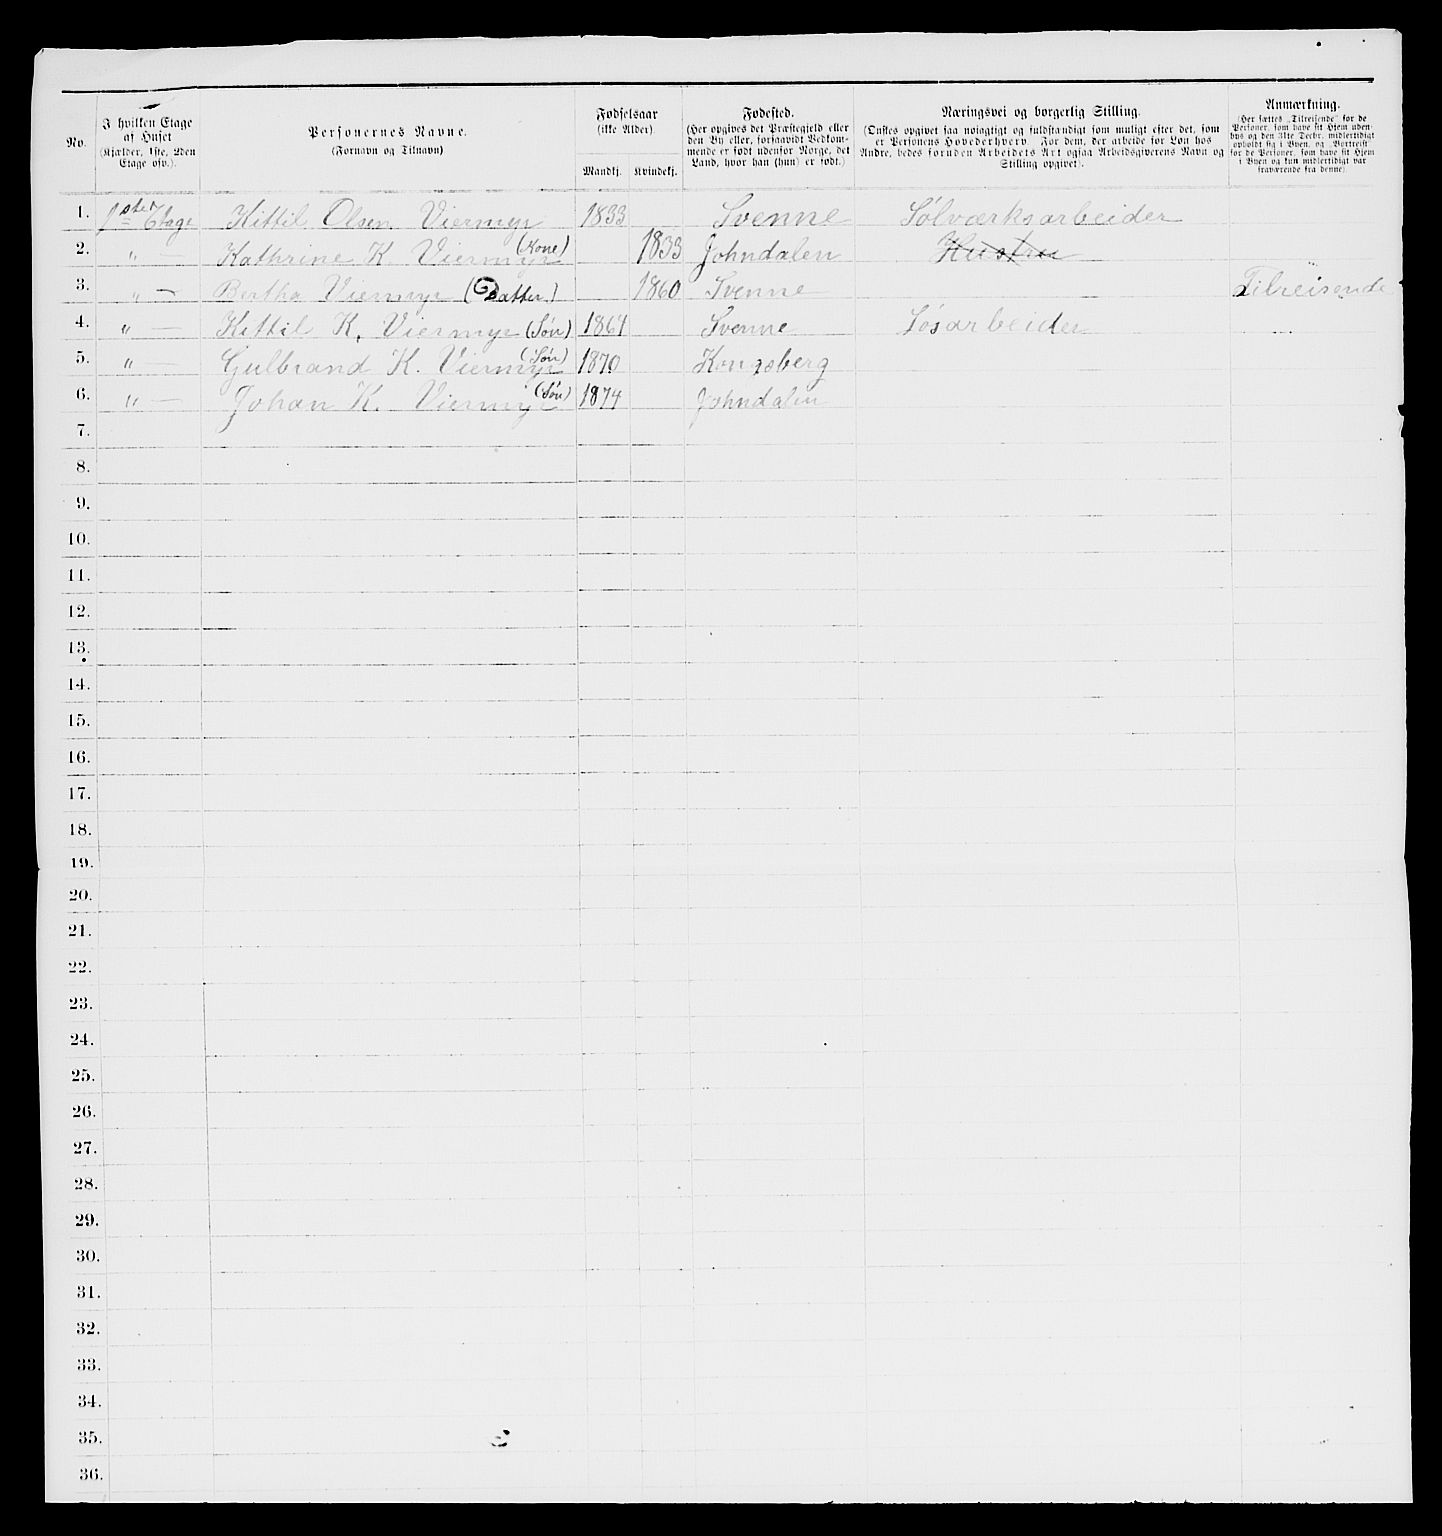 No.
I hvilken Etage
af Huset
(Kjælder, 1ste, 2den
Etage osv.).
Personernes Navne.
(Fornavn og Tilnavn)
Fødselsaar
(ikke Alder).
Mandkj. Kvindekj.
Fødested.
(Her opgives det Præstegjeld eller
den By eller, forsaavidt Vedkom-
mende er født udenfor Norge, det
Land, hvor han (hun) er født.)
Næringsvei og borgerlig Stilling.
(Ønskes opgivet saa nøiagtigt og fuldstændigt som muligt efter det, som
er Personens Hovederhverv. For dem, der arbeide for Løn hos
Andre, bedes foruden Arbeidets Art ogsaa Arbeidsgiverens Navn og
Stilling opgivet).
Anmærkning.
(Her sættes „Tilreisende“ for de
Personer, som have sit Hjem uden-
bys og den 31te Decbr. midlertidigt
opholdt sig i Byen, og „Bortreist“
for de Personer, som have sit Hjem
i Byen og kun midlertidigt var
fraværende fra denne).
1. 1ste Etage Kittil Olsen Viermyr 1833 Svenne Sølværksarbeider
2. " — Kathrine K. Viermyr (Kone) 1833 Johndalen Hustru
3. " — Bertha Viermyr (Datter) 1860 Svenne Tilreisende
4. " — Kittil K. Viermyr (Søn) 1864 Svenne Løsarbeider
5. " — Gulbrand K. Viermyr (Søn) 1870 Kongsberg
6. " — Johan K. Viermyr (Søn) 1874 Johndalen
7.
8.
9.
10.
11.
12.
13.
14.
15.
16.
17.
18.
19.
20.
21.
22.
23.
24.
25.
26.
27.
28.
29.
30.
31.
32.
33.
34.
35.
36.